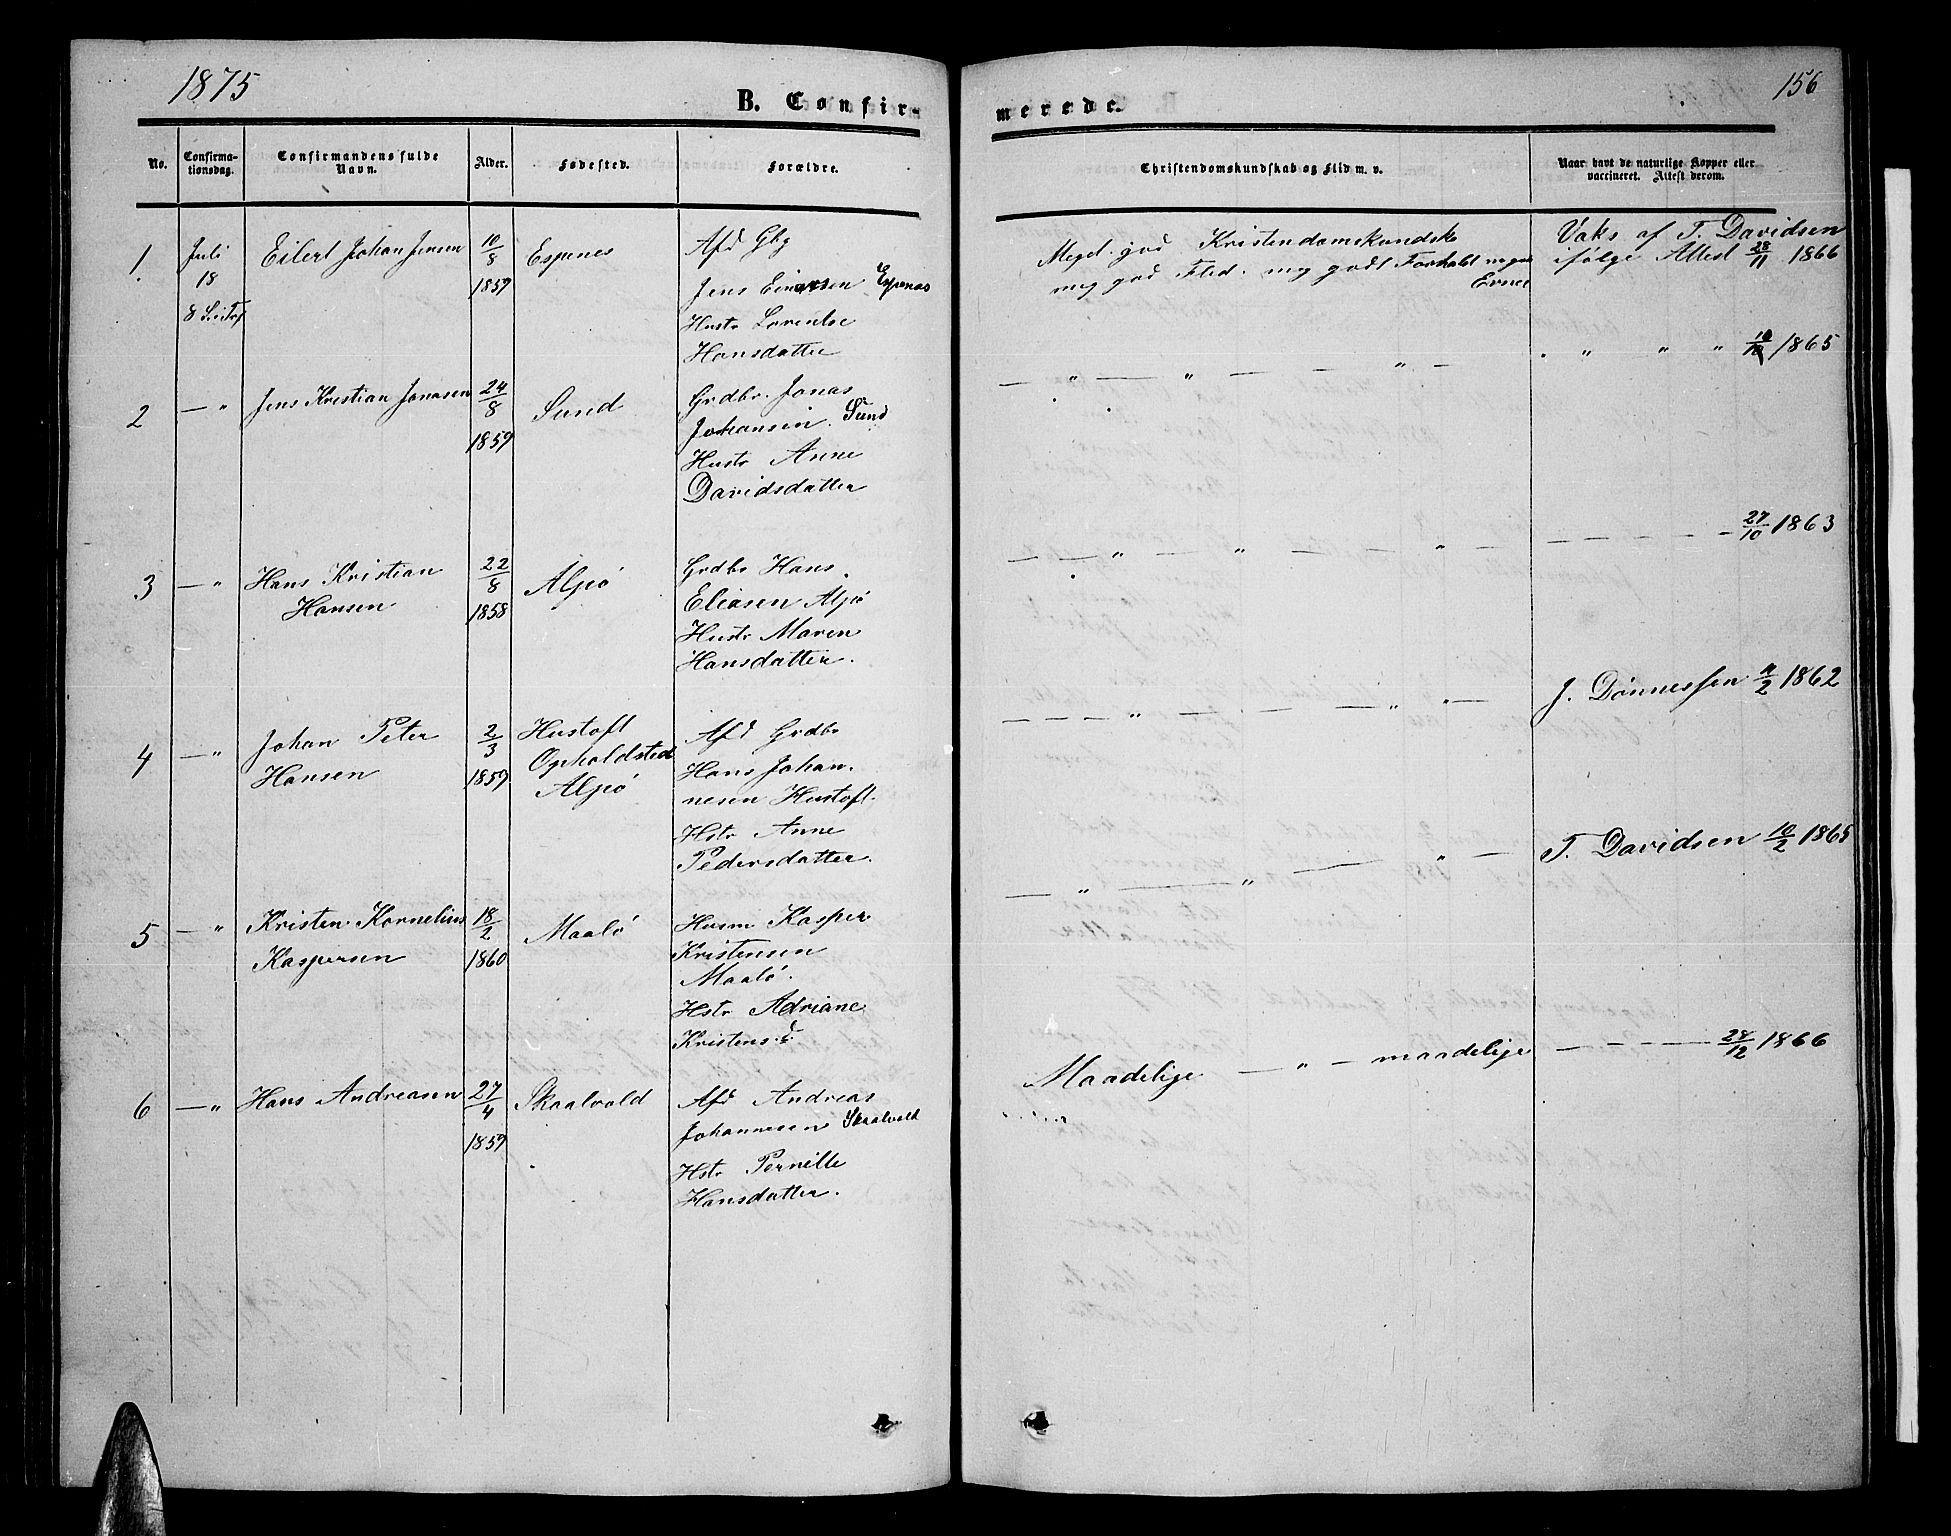 1875
156
B. Confir-
merede.
No.
Confirma-
tionsdag.
Confirmandens fulde
Navn.
Alder.
Fødested.
Forældre.
Christendomskundskab og Flid m. v.
Naar havt de naturlige Kopper eller
vaccineret. Attest derom.
1.
Juli
18
8 S. e. Tr
Eilert Johan Jensen
10/8
1859
Espenes
Afd Gbg
Jens Einarsen Espenes
Hustr Lorentse
Hansdatter
Meget god Kristendomskundsk
meg god Flid. meg godt Forhold
Evner
Vaks af T. Davidsen
ifølge Attest 28/11 1866
2
— "
Jens Kristian Jonasen
24/8
1859
Sund
Grdbr. Jonas
Johansen. Sund
Hustr Anne
Davidsdatter
— " — " — " —
" " " 10/10 1865
3
— "
Hans Kristian
Hansen
22/8
1858
Alsiö
Grdbr Hans
Eliasen Alsiö
Hustr Maren
Hansdatter.
— — " — " — — " —
— — — — — 27/10 1863
4
— "
Johan Peter
Hansen
2/3
1859
Hustoft
Opholdsted
Alsiö
Afd Grdbr
Hans Johan-
nesen Hustoft.
Hstr Anne
Pedersdatter.
— — — " — — — " " —
J. Dönnessen 11/2 1862
5
— "
Kristen Kornelius
Kaspersen
18/2
1860
Maalö
Husm Kasper
Kristensen
Maalö.
Hstr Adriane
Kristensd.
— " — " — " —
T. Davidsen 10/2 1865
6
— "
Hans Andreasen
27/4
1859
Skaalvold
Afd Andreas
Johannesen Skaalvold
Hstr Pernille
Hansdatter.
Maadelige — " — maadelige
— — — — 28/12 1866